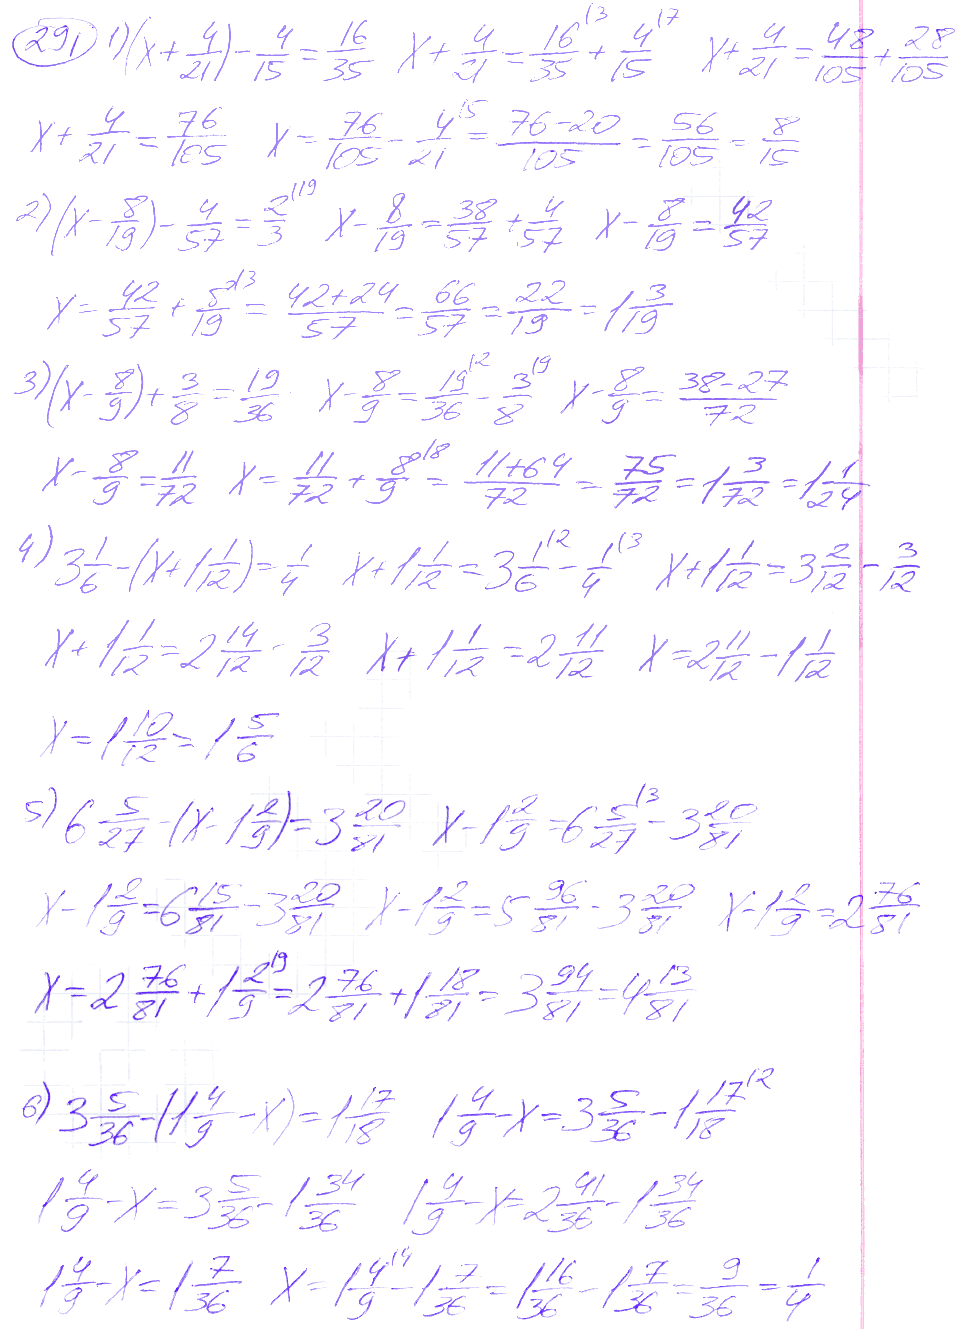 291 1) (x + 4/21) - 4/15 = 16/35   x + 4/21 = 16/35 |3 + 4/15 |7   x + 4/21 = 48/105 + 28/105
x + 4/21 = 76/105   x = 76/105 - 4/21 |5 = (76-20)/105 = 56/105 = 8/15
2) (x - 8/19) - 4/57 = 2/3 |19   x - 8/19 = 38/57 + 4/57   x - 8/19 = 42/57
x = 42/57 + 8/19 |3 = (42+24)/57 = 66/57 = 22/19 = 1 3/19
3) (x - 8/9) + 3/8 = 19/36   x - 8/9 = 19/36 |2 - 3/8 |9   x - 8/9 = (38-27)/72
x - 8/9 = 11/72   x = 11/72 + 8/9 |8 = (11+64)/72 = 75/72 = 1 3/72 = 1 1/24
4) 3 1/6 - (x + 1 1/12) = 1/4   x + 1 1/12 = 3 1/6 |2 - 1/4 |3   x + 1 1/12 = 3 2/12 - 3/12
x + 1 1/12 = 2 14/12 - 3/12   x + 1 1/12 = 2 11/12   x = 2 11/12 - 1 1/12
x = 1 10/12 = 1 5/6
5) 6 5/27 - (x - 1 2/9) = 3 20/81   x - 1 2/9 = 6 5/27 |3 - 3 20/81
x - 1 2/9 = 6 15/81 - 3 20/81   x - 1 2/9 = 5 96/81 - 3 20/81   x - 1 2/9 = 2 76/81
x = 2 76/81 + 1 2/9 |9 = 2 76/81 + 1 18/81 = 3 94/81 = 4 13/81
6) 3 5/36 - (1 4/9 - x) = 1 17/18   1 4/9 - x = 3 5/36 - 1 17/18 |2
1 4/9 - x = 3 5/36 - 1 34/36   1 4/9 - x = 2 41/36 - 1 34/36
1 4/9 - x = 1 7/36   x = 1 4/9 |4 - 1 7/36 = 1 16/36 - 1 7/36 = 9/36 = 1/4